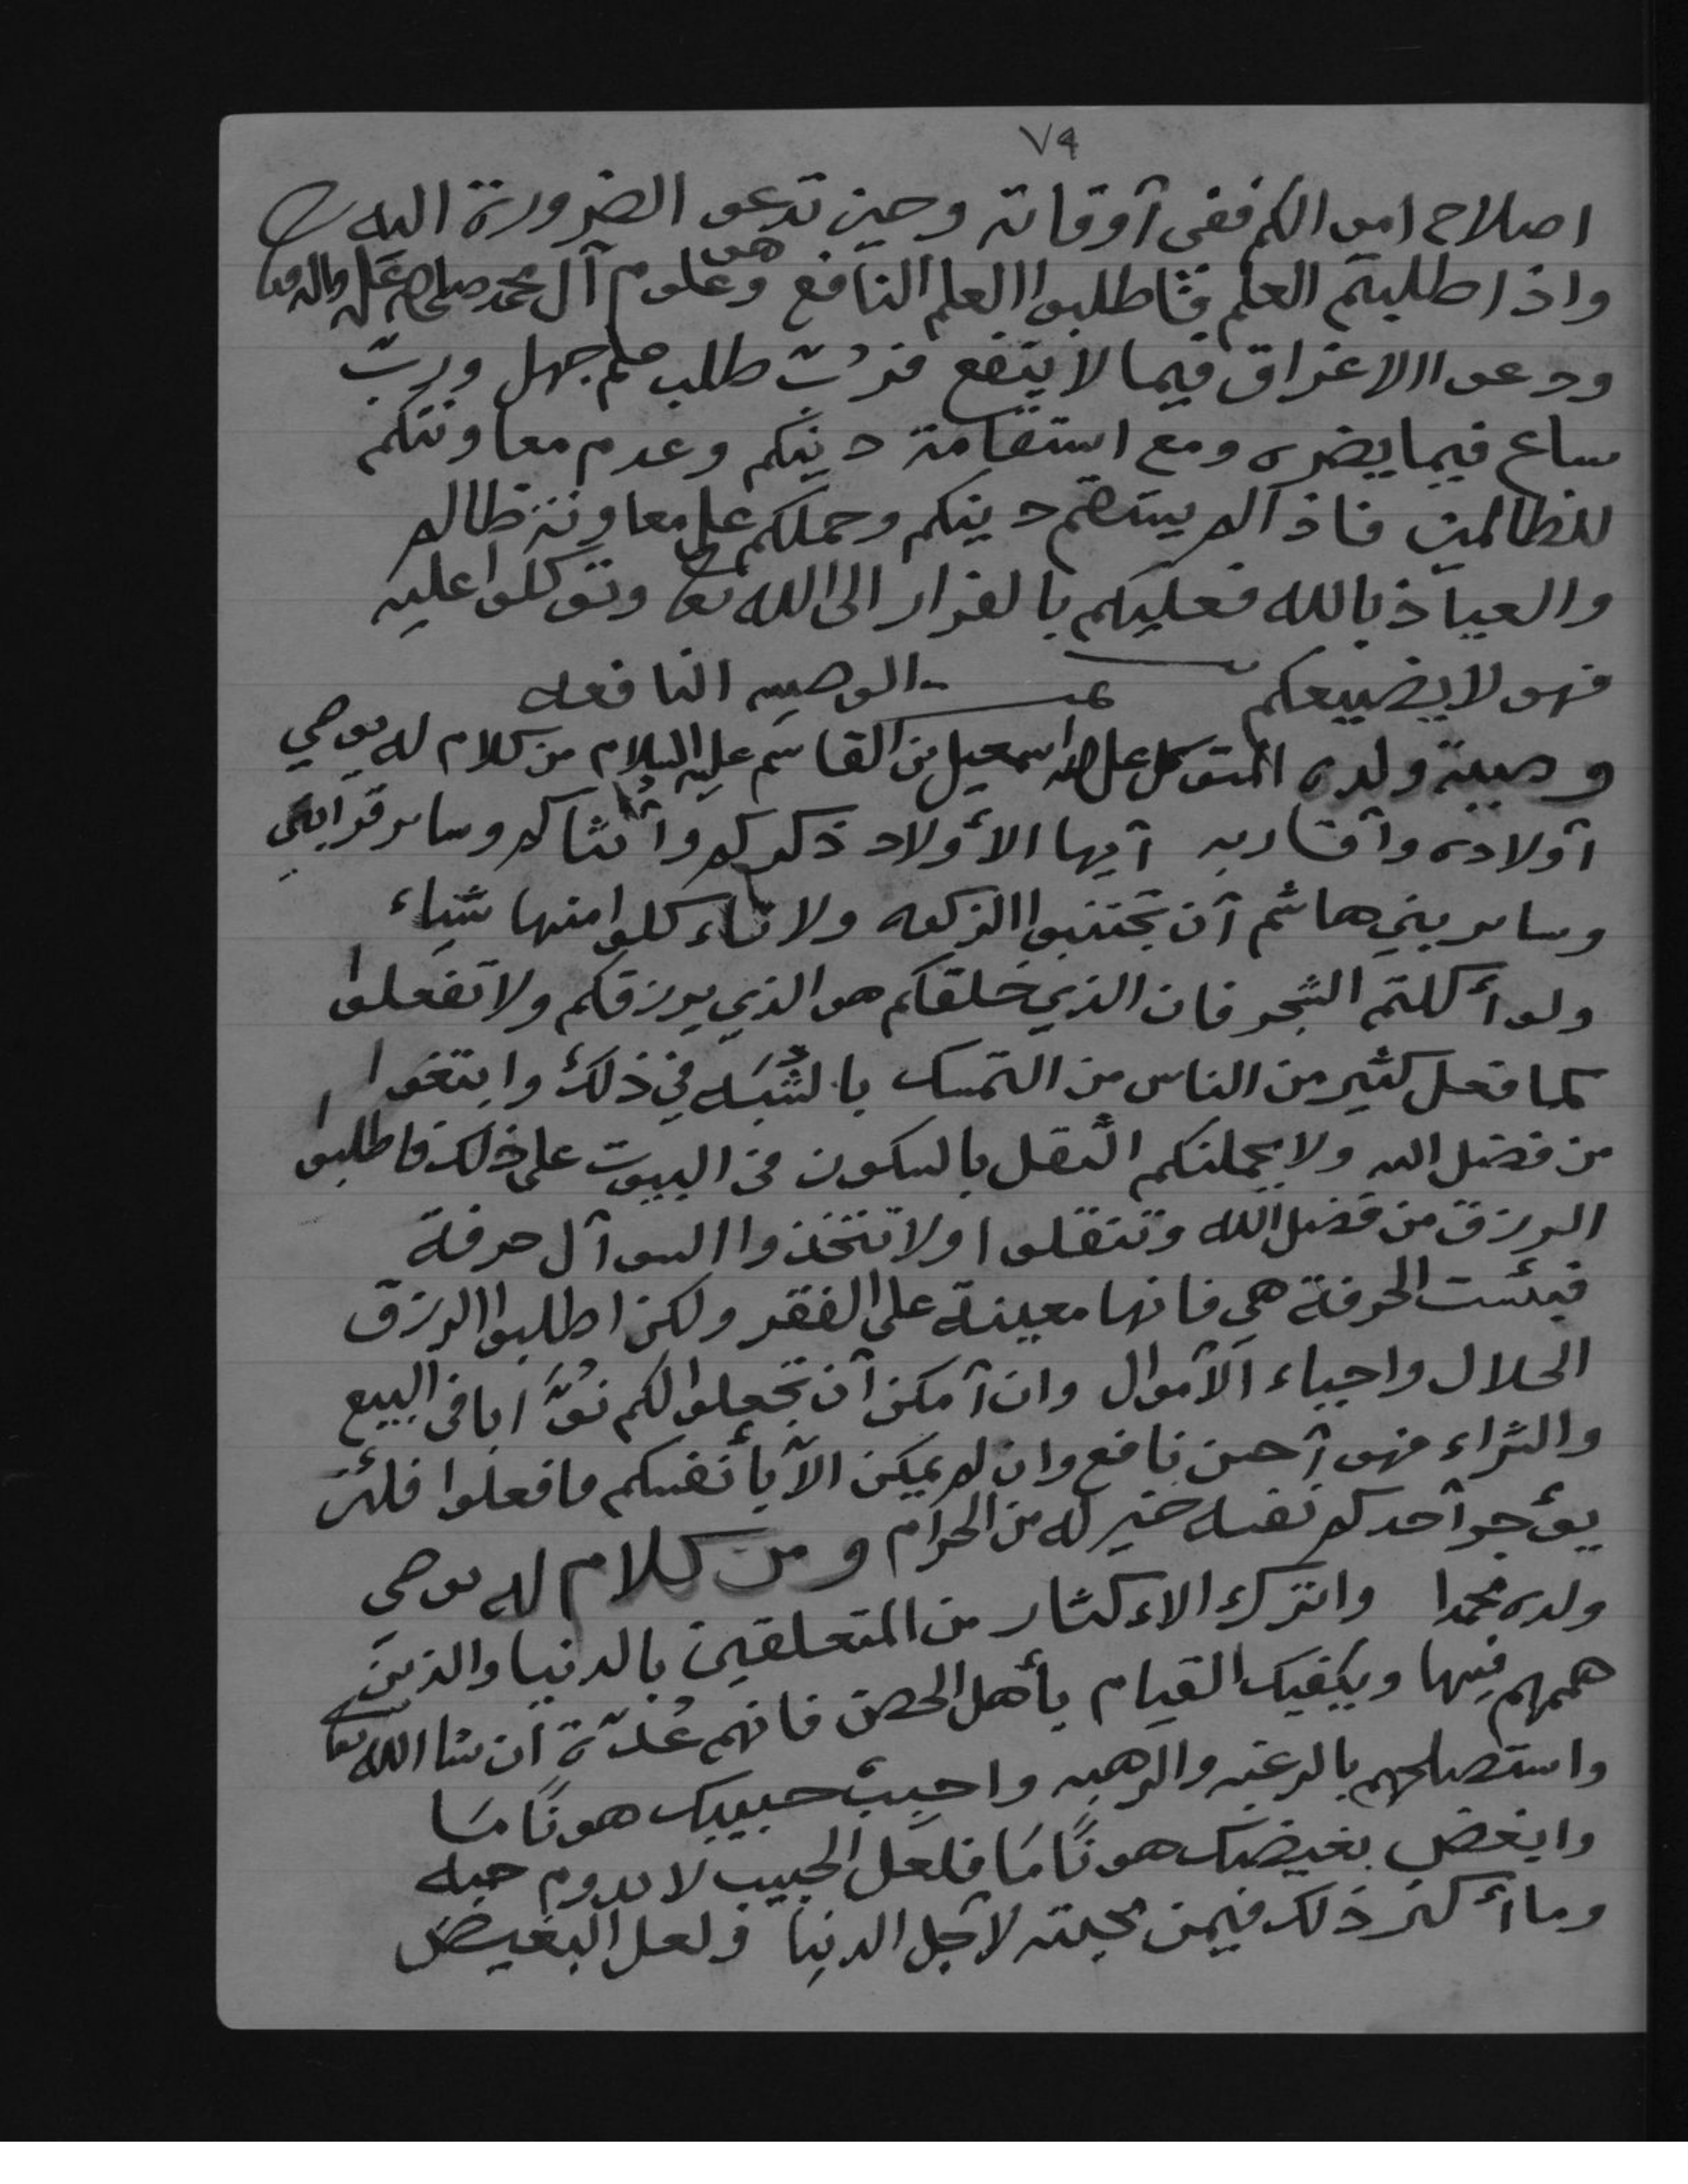 ٧٩
اصلاح اموالكم ففي آوقاته وحين تدعو الضرورة اليه
واذا طلبتم العلم فاطلبوا العلم النافع وهو علوم آل محمد صلى الله عليه واله وسلم
ودعوا الاغراق فيما لا ينفع فرُبّ طلب علم جهل وربّ
ساع فيما يضره ومع استقامة دينكم وعدم معاونتكم
للظالمين فاذا لم يستقم دينكم وحملكم على معاونة ظالم
والعياذ بالله فعليكم بالفرار الى الله تعالى وتوكلوا عليه
فهو لا يضيعكم الوصيه النافعه
وصية ولده المتوكل على الله اسمعيل بن القاسم عليه السلام من كلام له يوصي
آولاده وآقاربه آيها الأولاد ذكركم وأنثاكم وسائر قرابتي
وسائر بني هاشم آن تجتنبوا الزكوه ولا تاءكلوا منها شياء
ولو أكلتم الشجر فان الذي خلقكم هو الذي يرزقكم ولا تفعلوا
كما فعل كثير من الناس من التمسك بالشُبَه في ذلك وابتغوا
من فضل الله ولا يحملنكم الثقل بالسكون في البيوت على ذلك فاطلبوا
الرزق من فضل الله وتنقلوا ولا تتخذوا السوآل حرفة
فبئست الحرفة هي فانها معينة على الفقر ولكن اطلبوا الرزق
الحلال واحياء الآموال وان آمكن آن تجعلوا لكم نُوَّابا في البيع
والشراء فهو آحسن نافع وان لم يمكن الآ بأنفسكم فافعلوا فلئن
يؤجر آحدكم نفسه خير له من الحرام ومن كلام له يوصي
ولده محمدا واترك الاءكثار من المتعلقين بالدنيا والذين
هممهم فيها ويكفيك القيام بأهل الحصن فانهم عُدّة ان شا الله تعالى
واستصلحهم بالرغبه والرهبه واحبب حبيبك هونًا مَا
وابغض بغيضك هونًا مَا فلعل الحبيب لا يدوم حبه
وما أكثر ذلك فيمن محبته لآجل الدنيا ولعل البغيض